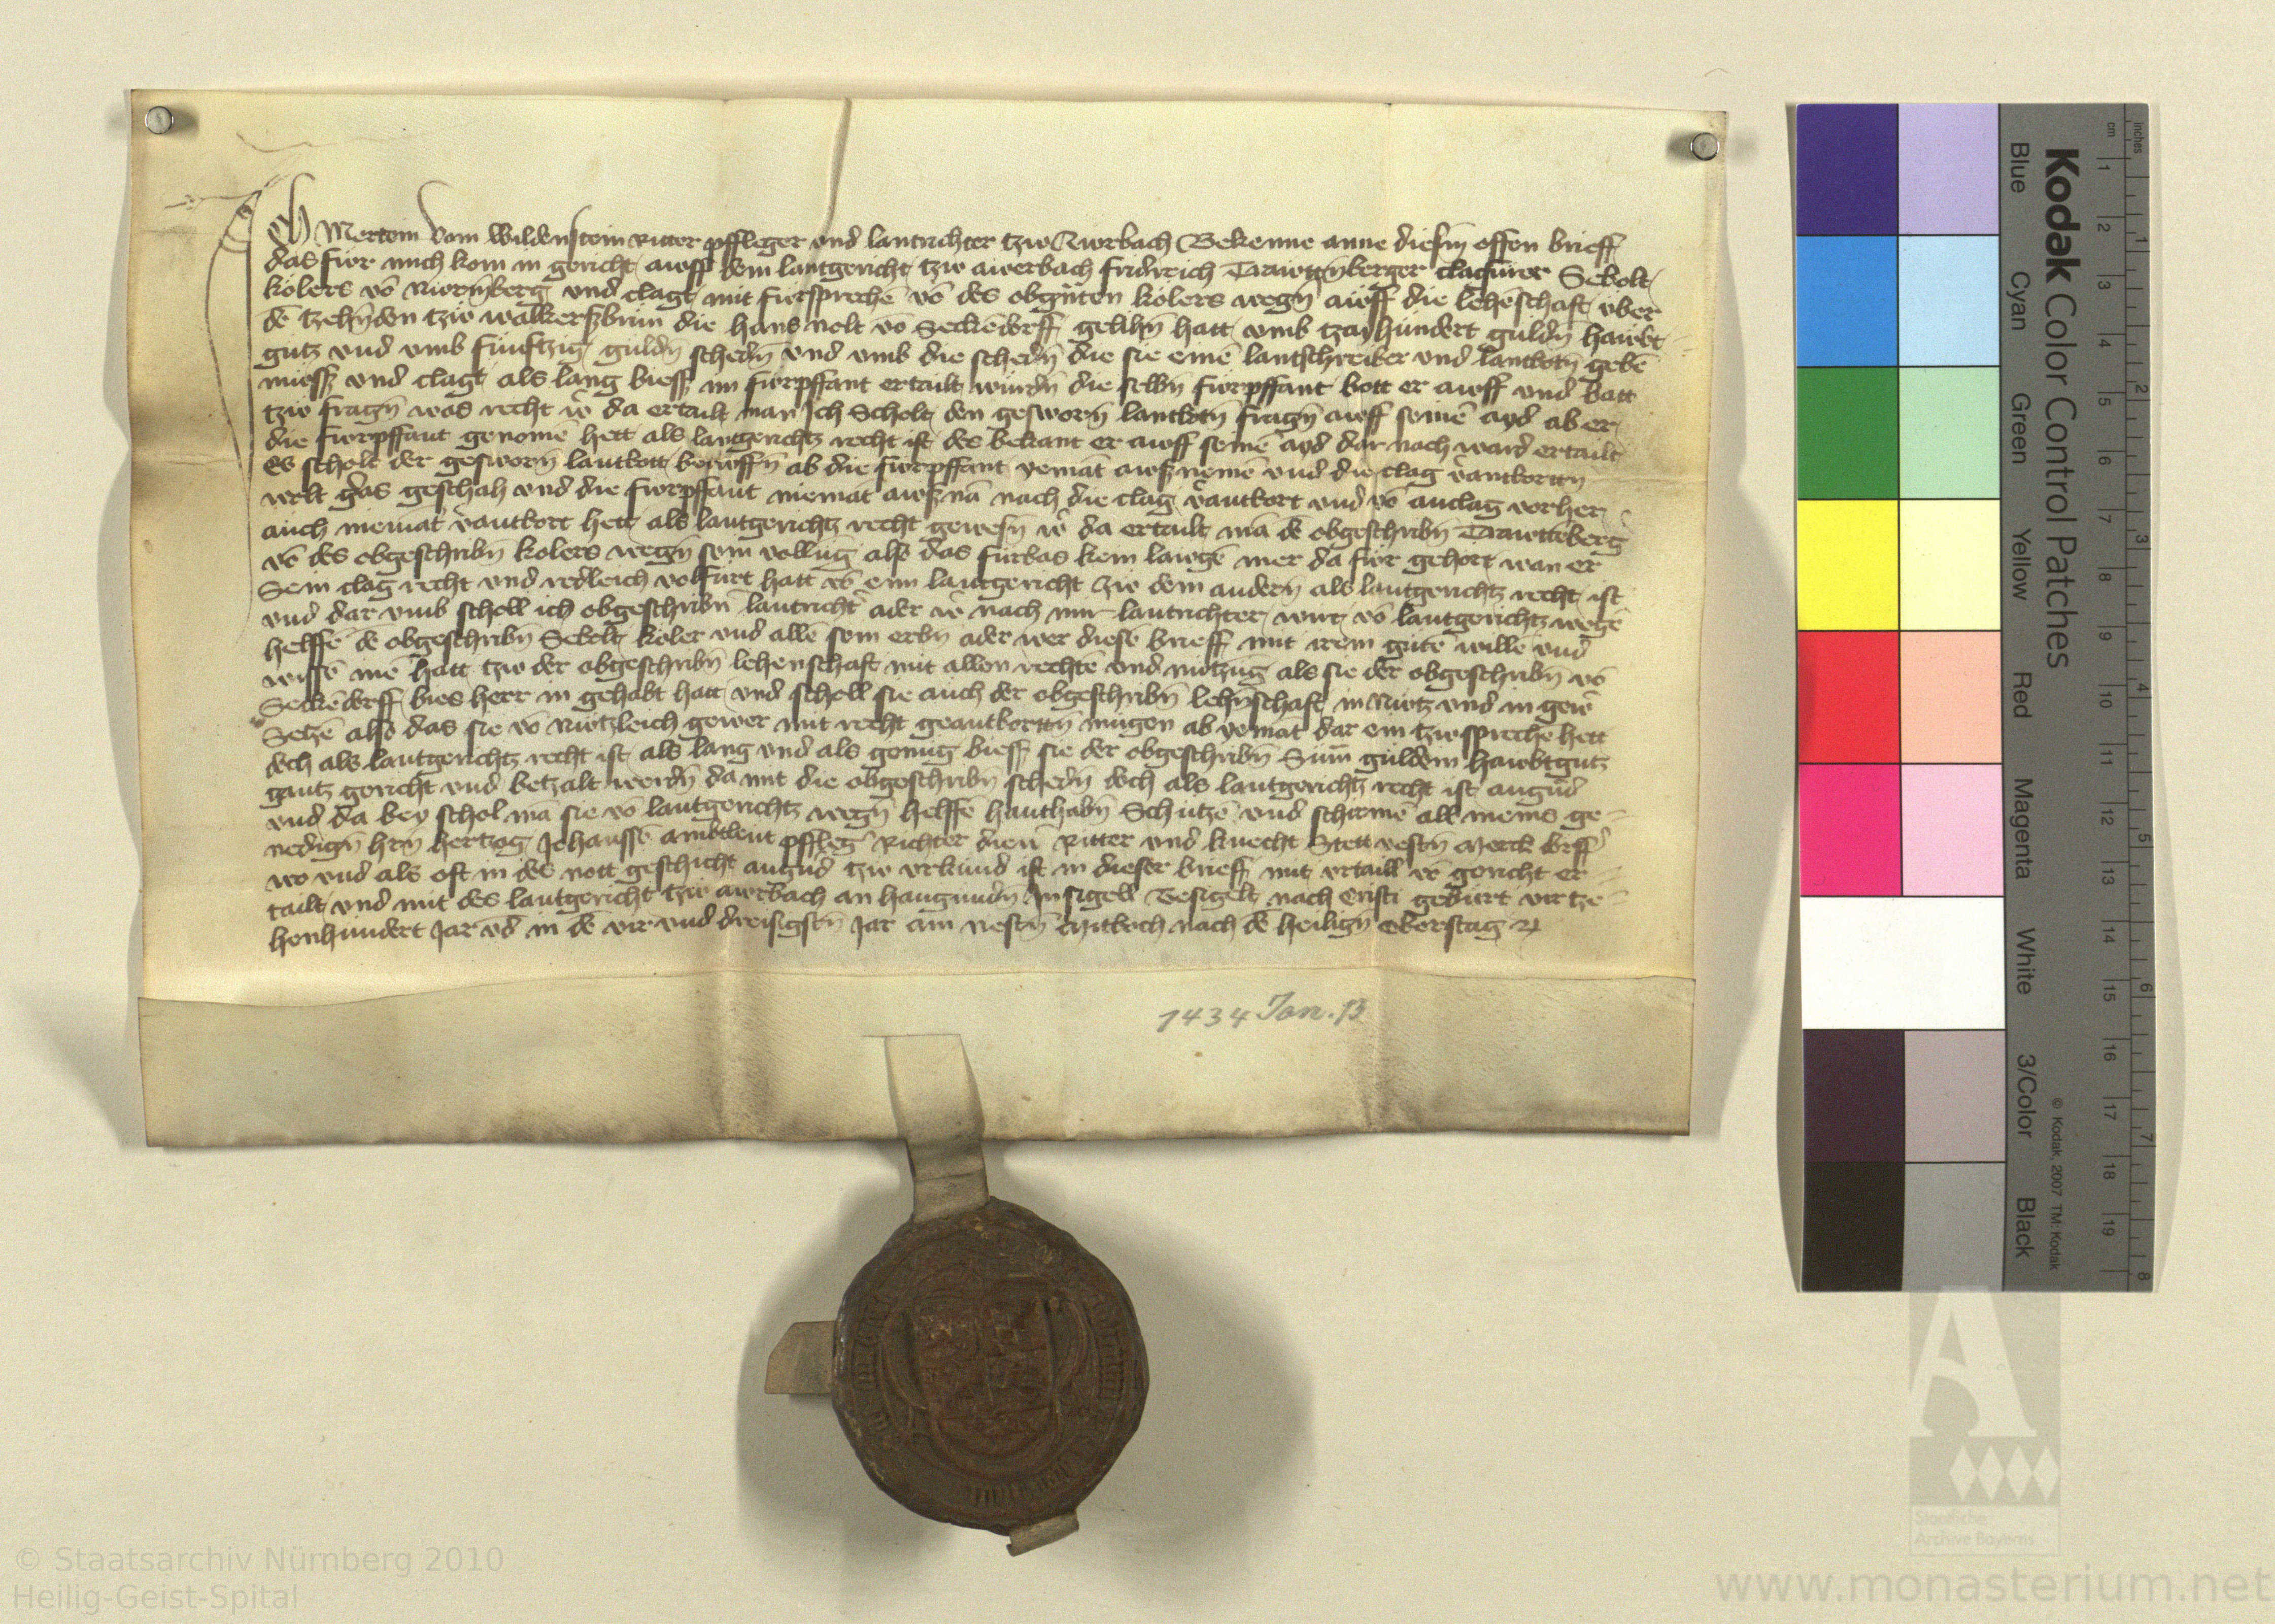 Ich Mertein vom Wildenstein Ritter pffleger vnd lantrichter tzw Awrbach Bekenne anne diesm̄ offen brieff
das fuor mich kom in gericht awff dem lantgericht tzw awerbach fridreich Trawttn̄berger clagfurer Sebolt
kolers vō Nurmberg vnd clagt mit fürsprechē vō des obgn̄ten kolers wegn̄ awff die lehēschaft vber
dē tzehn̄den tzw walkerszbrun die hans nolt vō Seckēdorff gelihn̄ hatt vmb tzay hundert guldn̄ hawbt
gutz vnd vmb funftzig guldn̄ schedn̄ vnd vmb die schedn̄ die sie einē lantschreiber vnd lantbotn̄ gebē
muesz vnd clagt als lang biesz im fuorpffant ertailt wurdn̄ die selbn̄ fuorpffant bott er awff vnd batt
tzw fragn̄ was recht w̄ da ertailt man Ich Scholt den gesworn̄ lantbotn̄ fragn̄ awff seinē ayd ab er
die fuorpffant genomē hett als lantgerichtz recht ist des bekant er awff seinē ayd dar nach ward ertailt
Es scholt der gesworn̄ lantbott beruoffn̄ ab die fuorpffant yemāt awsz nemē vnd die clag v̄antbortn̄
wolt das geschah vnd die fuorpffant niemāt awsz nā nach die clag v̄antbort vnd vō anclag vorher
auch niemāt v̄antbort hett als lantgerichtz recht gewesn̄ w̄ da ertailt mā dē obgeschribn̄ Trawttēberg
vō des obgeschribn̄ kolers wegn̄ sein vollūg also das furbas kein laugē mer da fuor gehort wan er
Sein clag recht vnd redleich volfurt hatt vō eim lantgericht zw dem andern̄ als lantgerichtz recht ist
vnd dar vmb scholl ich obgeschribn̄ lantricht̄ ader w̄ nach mir lantrichter wirt vō lantgerichtz wegē
helffē dē obgeschribn̄ Sebolt koler vnd allē sein erbn̄ ader wer diesē brieff mit irem gutē willē vnd
wissē inē hatt tzw der obgeschribn̄ lehenschaft mit allen rechtē vnd nutzūg als sie der obgeschribn̄ vō
Seckēdorff bies herr in gehabt hatt vnd scholl sie auch der obgeschribn̄ lehn̄schaft in Nutz vnd in gew̄
Setzē also das sie vō Nutzleich gewer mit recht geantbortn̄ mugen ab yemāt dar ein tzwspreche hett
doch als lantgerichtz recht ist als lang vnd als genug biesz sie der obgeschribn̄ Sum̄ guldein hawbtgutz
gantz gericht vnd betzalt werdn̄ da mit die obgeschribn̄ schedn̄ doch als lantgerichtz recht ist angūd
vnd da bey schol mā sie vō lantgerichtz wegn̄ helffē hanthabn̄ Schutzē vnd schirmē all meins ge=
nedign̄ hrn̄ hertzog Johanssē ambtleut pffleḡ Richter dien̄ Ritter vnd knecht Stett vestn̄ Merck dorff̄
wo vnd als oft in des nott geschicht angūd tzw vrkund ist in dieser brieff mit vrtaill vō gericht er=
tailt vnd mit des lantgericht tzw awrbach an hangundn̄ Insigell Vesigelt nach Cristi geburt vir tze=
henhundert Jar vn̄d in dē vir vnd dreisigstn̄ Jar am nestn̄ Mitboch nach dē heilign̄ Oberstag
1434 Jan. 13
Kodak Color Control Patches
Blue Cyan Green Yellow Red Magenta White 3/Color Black
© Kodak, 2007 TM: Kodak
inches 1 2 3 4 5 6 7 8
cm 1 2 3 4 5 6 7 8 9 10 11 12 13 14 15 16 17 18 19
Staatliche
Archive Bayerns
© Staatsarchiv Nürnberg 2010
Heilig-Geist-Spital
www.monasterium.net